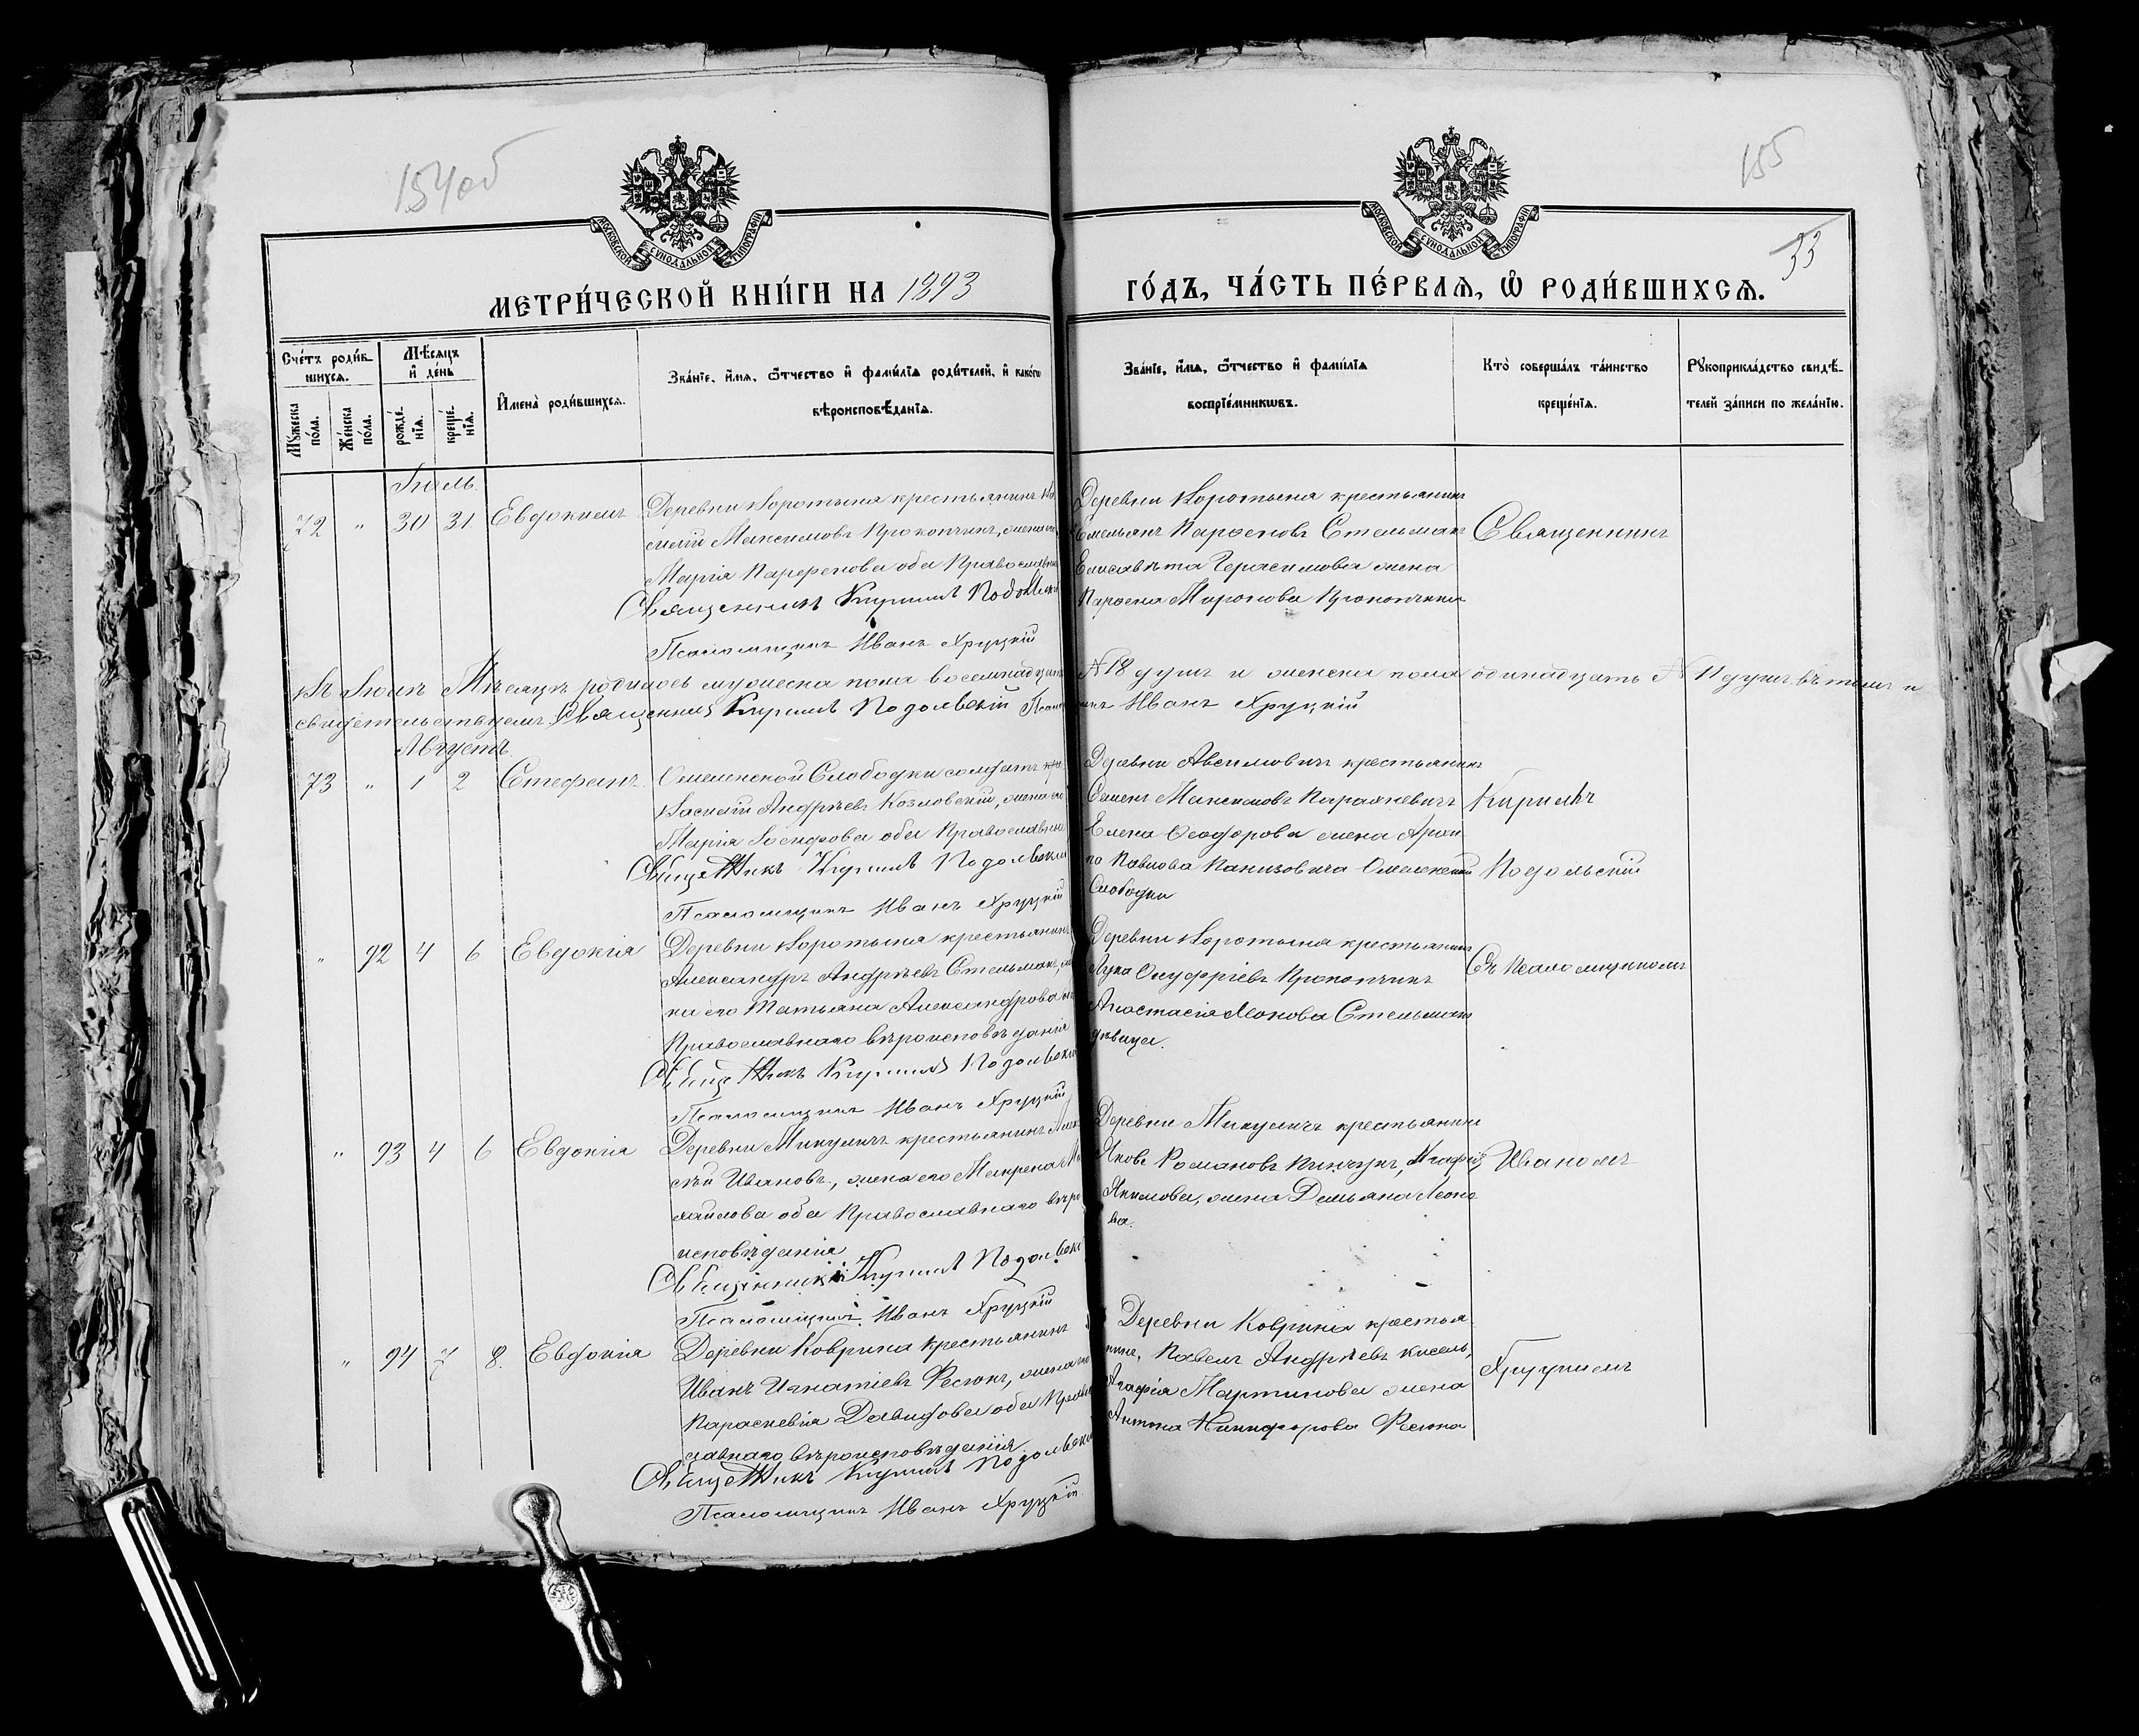 154об
155
33
МОСКОВСКОЙ СѴНОДАЛЬНОЙ ТИПОГРАФІИ
МОСКОВСКОЙ СѴНОДАЛЬНОЙ ТИПОГРАФІИ
МЕТРИ́ЧЕСКОЙ КНИ́ГИ НА 1893
ГО́ДЪ, ЧА́СТЬ ПЕ́РВАЯ, Ѿ РОДИ́ВШИХСѦ.
Сче́тъ роди́в-
шихсѧ.
Мѣ́сяцъ
и҆ де́нь
Мꙋ́жеска
по́ла.
Же́нска
по́ла.
рожде́-
нїѧ.
креще́-
нїѧ.
И҆мена̀ роди́вшихсѧ.
Зва́нїе, и҆́мѧ, ѻ҆́тчество и҆ фами́лїѧ роди́телей, и҆ како́гѡ
вѣроисповѣ́данїѧ.
Зва́нїе, и҆́мѧ, ѻ҆́тчество и҆ фами́лїѧ
воспрїе́мникѡвъ.
Кто̀ соверша́лъ та́инство
креще́нїѧ.
Рꙋкоприкла́дство свидѣ́-
телей за́писи по жела́нїю.
Іюль
72 " 30 31 Евдокимъ
Деревни Воротына крестьянинъ Ва
силій Максимовъ Прокопчикъ, жена его
Марія Парфенова оба Православн
Священникъ Кириллъ Подольскій
Псаломщикъ Иванъ Хруцкій
Деревни Воротына крестьянинъ
Емельянъ Парфеновъ Стельмах
Елисавѣта Герасимова жена
Парфена Миронова Прокопчика
Священникъ
Въ Іюлѣ Мѣсяцѣ родилось мужеска пола восемнадцать № 18 душъ и женска пола одинадцать № 11 душъ въ томъ и
свидѣтельствуемъ Священникъ Кириллъ Подольскій Псаломщикъ Иванъ Хруцкій
Августъ
73 " 1 2 Стефанъ
Слободки солдатъ
Василій Андреевъ Козловскій, жена его
Марія Іосифова оба Православные
Священникъ Кириллъ Подольскій
Псаломщикъ Иванъ Хруцкій
Деревни Авсимовичъ крестьянинъ
Семенъ Максимовъ
Елена Ѳеодорова жена
Павлова
Слободки
Кириллъ
Подольскій
" 92 4 6 Евдокія
Деревни Воротына крестьянинъ
Александръ Андреевъ Стельмахъ, же
на его Татьяна Александрова
Православнаго вѣроисповѣданія
Священникъ Кириллъ Подольскій
Псаломщикъ Иванъ Хруцкій
Деревни Воротына крестьянинъ
Лука Онуфріевъ Прокопчикъ
Анастасія Стельмах
дѣвица.
Съ Псаломщикомъ
" 93 4 6 Евдокія
Деревни Микуличъ крестьянинъ Алек
сѣй Ивановъ, жена его Макрена Ми
хайлова оба Православнаго вѣро
исповѣданія
Священникъ Кириллъ Подольскі
Псаломщикъ Иванъ Хруцкій
Деревни Микуличъ крестьянинъ
Яковъ Романовъ Пинчукъ, Агафія
Якимова, жена Демьяна Леоно
ва.
Иваномъ
" 94 7 8. Евдокія
Деревни Коврина крестьянинъ
Иванъ Игнатіевъ Фесюкъ, жена его
Параскевія Давидова оба Право
славнаго вѣроисповѣданія
Священникъ Кириллъ Подольскі
Псаломщикъ Иванъ Хруцкій.
Деревни Коврина крестья
нинъ, Павелъ Андреевъ Кисель,
Агафія Мартинова жена
Антона Никифорова Фесюка
Хруцкимъ